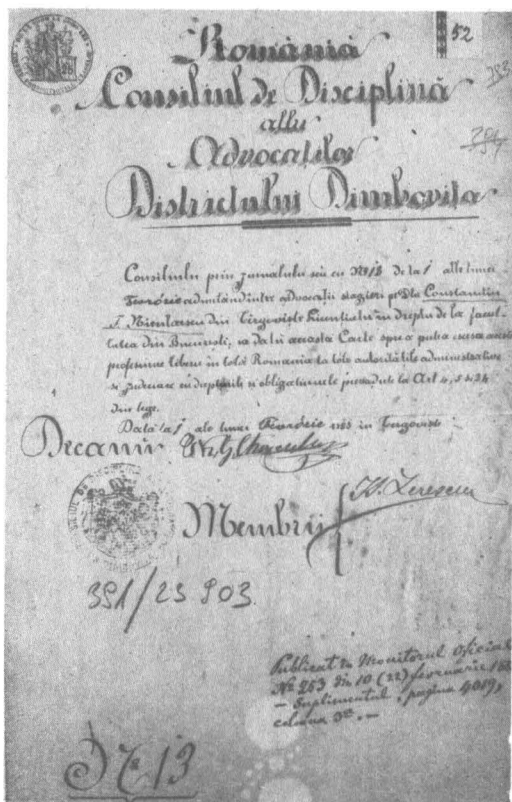 52
România
Consiliul de Disciplină
allu
Advocatilor
Districtului Dimbovita
Consiliulu prin jurnalulu seu cu No 13 de la 1 alle lunei
Fevruarie admitând intre advocatii stagiari pe Dlu Constantin
T. din Tirgoviste licentiatu in dreptu de la facul-
tatea din Bucuresti, i-a datu aceasta Carte spre a putea esersa acesta
profesiune libera in totă Romania la tote autoritătile administrative
si judiciare cu drepturile si obligatiunile prevedute la Art 4, 5 si 24
din lege.
Data la 1 ale lunei in Tirgoviste
Decanu
Membrii
391/23 903
Publicat în Monitorul Oficial
No 253 din 10 (22) februarie
- Suplimentul, pagina 4019,
coloana 3a. -
No 13